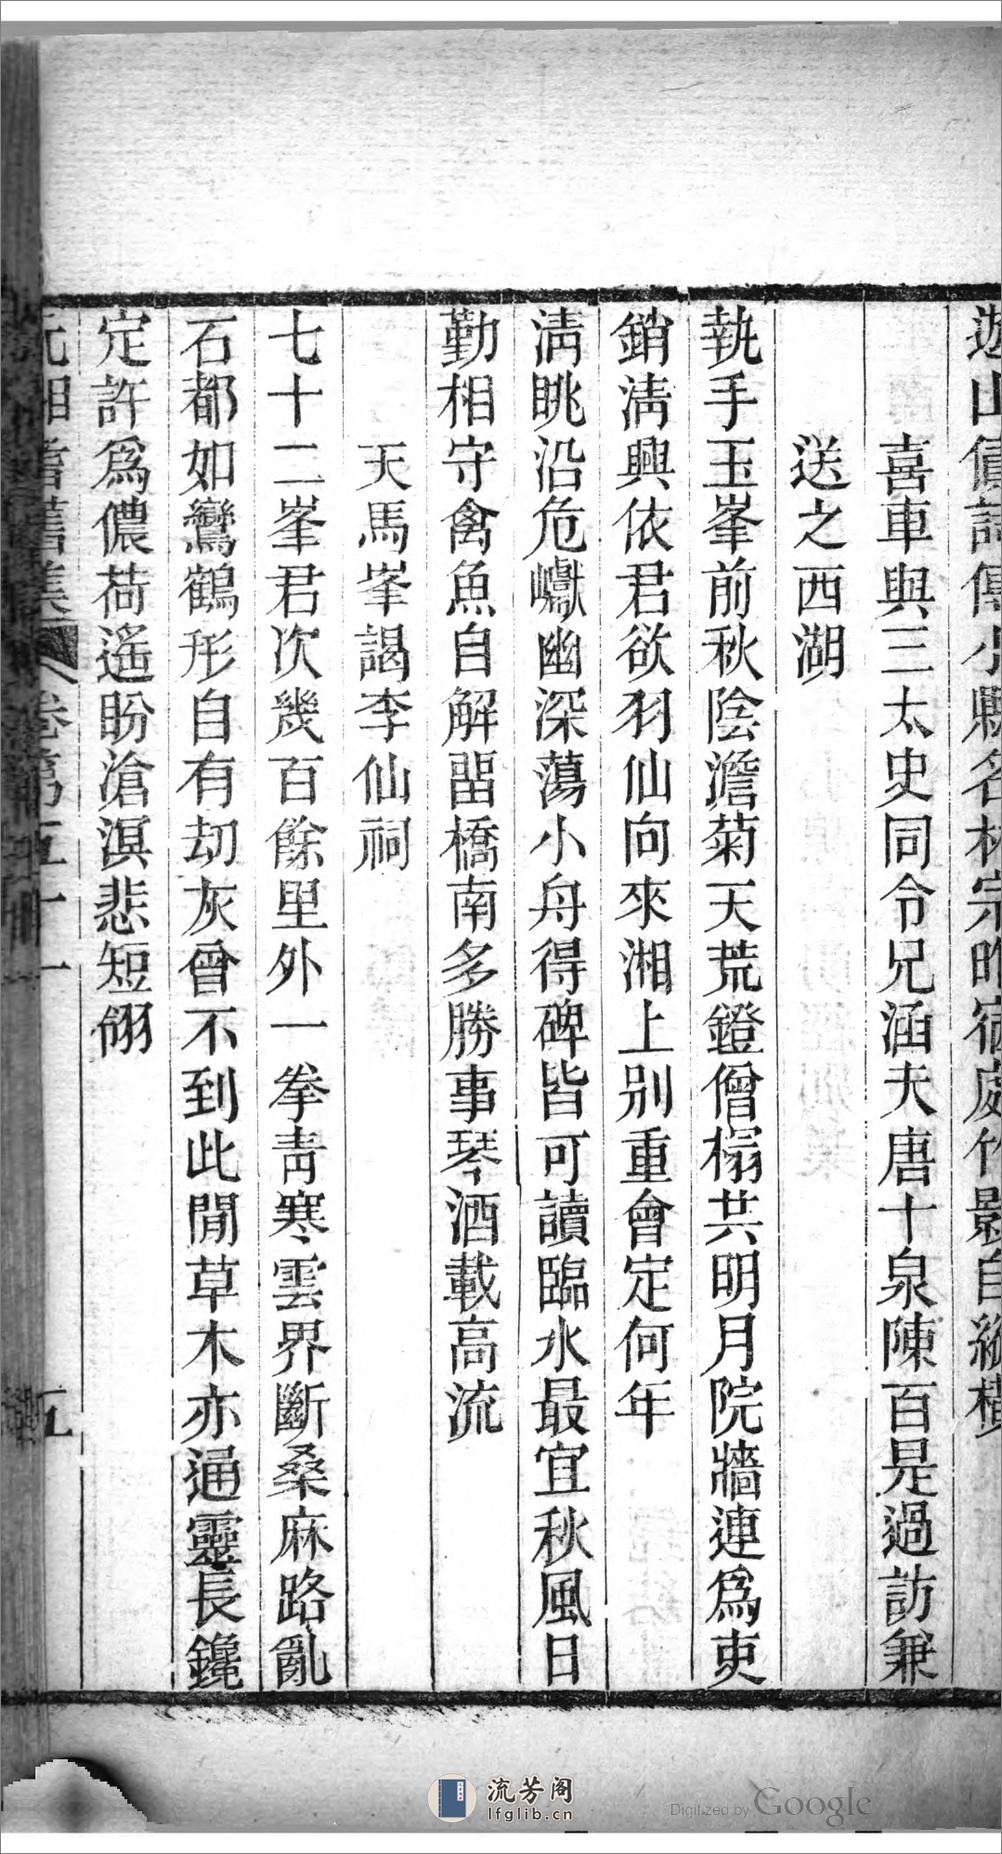 遊山債詩傳小縣名林宗昨宿處竹影自縱橫
喜車與三太史同令兄涵夫唐十泉陳百是過訪兼
送之西湖
執手玉峯前秋陰澹菊天荒鐙僧榻共明月院牆連爲吏
銷淸興依君欲羽仙向來湘上別重會定何年
淸眺沿危巘幽深蕩小舟得碑皆可讀臨水最宜秋風日
勤相守禽魚自解畱橋南多勝事琴酒載高流
天馬峯謁李仙祠
七十二峯君次幾百餘里外一拳靑寒雲界斷桑麻路亂
石都如鸞鶴形自有劫灰曾不到此閒草木亦通靈長鑱
定許爲儂荷遙盼滄溟悲短翎
沅湘耆舊集 卷第五十一 五
流芳阁
lfglib.cn
Digitized by Google